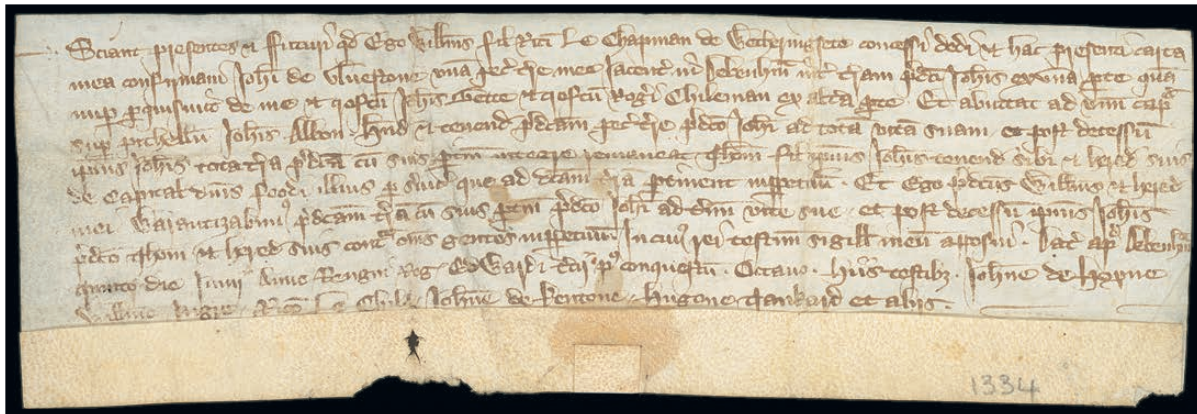 Sciant presentes et ffuturi qd Ego Willms fil Rici Le Chapman de Wetheringsete concessi dedi et hac presenti carta
mea confirmaui Johi de Vluestone vnã pec tre mee Jacent in Debenhm int tram pdci Johis ex vna pte quã
nup pquisiuit de me et qostũ Johis Gette et qostũ Rogi Chileman ex altra pte Et abuttat ad vnũ cap
sup pichellũ Johis Albon hnd et tenend pdcam pec tre pdco Johi ad totã vitã suam et post decessũ
ipius Johis tota tra pdca cũ suis ptin integre remaneat Thom fil ipius Johis tenend sibi et hered suis
de Capital dnis feodi illius p suic que ad dcam trã ptinent inppetuũ Et Ego pdcus Willms et hered
mei Warantizabim pdcam trã cũ suis ptin pdco Johi ad tmĩ vite sue et post decessũ ipius Johis
pdco Thom et hered suis cont oms gentes inppetuum In cuius rei testim sigill meũ apposui Dat apd Debenhm
quinto die Junii Anno Regni Reg Edwardi tcii p conquestũ Octauo Hiis testibz Johne de Hoxne
Le Child Johne de Kentone Hugone Tankard et aliis
1334